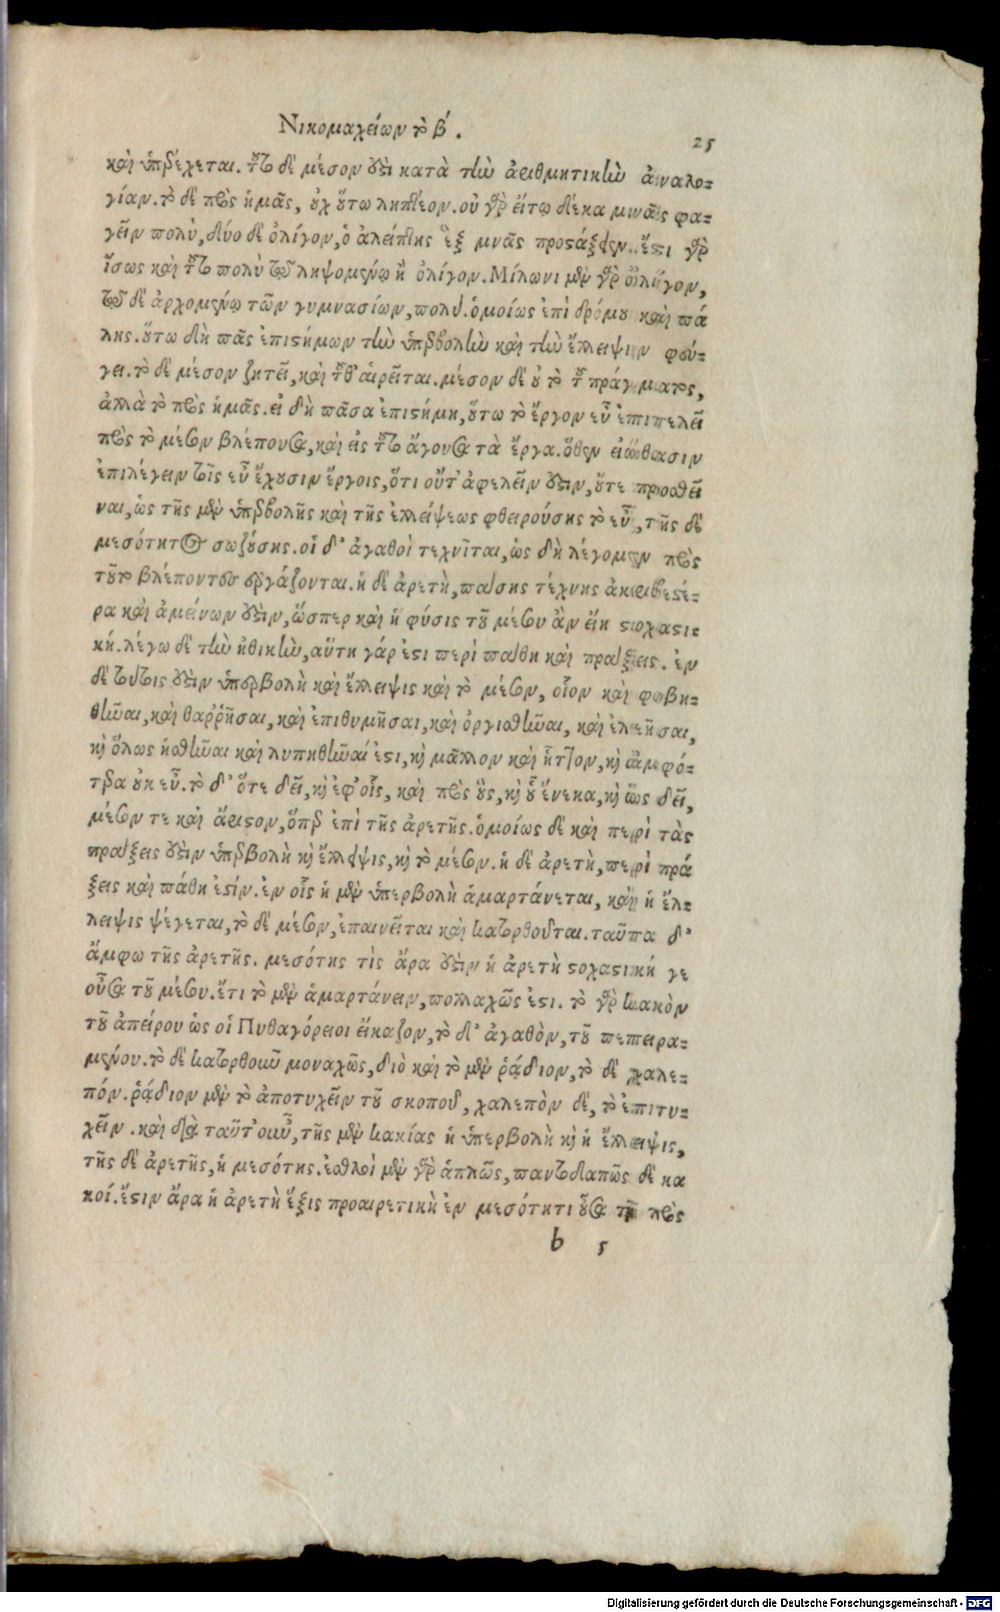 Νικομαχείων τὸ β΄.
25
καὶ ὑπερέχεται. τοῦτο δὲ μέσον ἐστὶ κατὰ τὴν ἀριθμητικὴν ἀναλο-
γίαν. τὸ δὲ πρὸς ἡμᾶς, οὐχ οὕτω ληπτέον. οὐ γὰρ εἴ τῳ δέκα μνᾶς φα-
γεῖν πολὺ, δύο δὲ ὀλίγον, ὁ ἀλείπτης ἓξ μνᾶς προστάξει. ἔστι γὰρ
ἴσως καὶ τοῦτο πολὺ τῷ ληψομένῳ ἢ ὀλίγον. Μίλωνι μὲν γὰρ ὀλίγον,
τῷ δὲ ἀρχομένῳ τῶν γυμνασίων, πολύ. ὁμοίως ἐπὶ δρόμου καὶ πά
λης. οὕτω δὴ πᾶς ἐπιστήμων τὴν ὑπερβολὴν καὶ τὴν ἔλλειψιν φεύ-
γει. τὸ δὲ μέσον ζητεῖ, καὶ τοῦθ' αἱρεῖται. μέσον δὲ οὐ τὸ τοῦ πράγματος,
ἀλλὰ τὸ πρὸς ἡμᾶς. εἰ δὴ πᾶσα ἐπιστήμη, οὕτω τὸ ἔργον εὖ ἐπιτελεῖ
πρὸς τὸ μέσον βλέπουσα, καὶ εἰς τοῦτο ἄγουσα τὰ ἔργα. ὅθεν εἰώθασιν
ἐπιλέγειν τοῖς εὖ ἔχουσιν ἔργοις, ὅτι οὔτ' ἀφελεῖν ἐστιν, οὔτε προσθεῖ
ναι, ὡς τῆς μὲν ὑπερβολῆς καὶ τῆς ἐλλείψεως φθειρούσης τὸ εὖ, τῆς δὲ
μεσότητος σωζούσης. οἱ δ' ἀγαθοὶ τεχνῖται, ὡς δὴ λέγομεν πρὸς
τοῦτο βλέποντες ἐργάζονται. ἡ δὲ ἀρετὴ, πάσης τέχνης ἀκριβεστέ-
ρα καὶ ἀμείνων ἐστὶν, ὥσπερ καὶ ἡ φύσις τοῦ μέσου ἂν εἴη στοχαστι-
κή. λέγω δὲ τὴν ἠθικὴν, αὕτη γάρ ἐστι περὶ πάθη καὶ πράξεις. ἐν
δὲ τούτοις ἐστὶν ὑπερβολὴ καὶ ἔλλειψις καὶ τὸ μέσον, οἷον καὶ φοβη-
θῆναι, καὶ θαῤῥῆσαι, καὶ ἐπιθυμῆσαι, καὶ ὀργισθῆναι, καὶ ἐλεῆσαι,
καὶ ὅλως ἡσθῆναι καὶ λυπηθῆναί ἐστι, καὶ μᾶλλον καὶ ἧττον, καὶ ἀμφό-
τερα οὐκ εὖ. τὸ δ' ὅτε δεῖ, καὶ ἐφ' οἷς, καὶ πρὸς οὓς, καὶ οὗ ἕνεκα, καὶ ὡς δεῖ,
μέσον τε καὶ ἄριστον, ὅπερ ἐπὶ τῆς ἀρετῆς. ὁμοίως δὲ καὶ περὶ τὰς
πράξεις ἐστὶν ὑπερβολὴ καὶ ἔλλειψις, καὶ τὸ μέσον. ἡ δὲ ἀρετὴ, περὶ πρά
ξεις καὶ πάθη ἐστίν. ἐν οἷς ἡ μὲν ὑπερβολὴ ἁμαρτάνεται, καὶ ἡ ἔλ-
λειψις ψέγεται, τὸ δὲ μέσον, ἐπαινεῖται καὶ κατορθοῦται. ταῦτα δ'
ἄμφω τῆς ἀρετῆς. μεσότης τὶς ἄρα ἐστὶν ἡ ἀρετὴ στοχαστική γε
οὖσα τοῦ μέσου. ἔτι τὸ μὲν ἁμαρτάνειν, πολλαχῶς ἐστι. τὸ γὰρ κακὸν
τοῦ ἀπείρου ὡς οἱ Πυθαγόρειοι εἴκαζον, τὸ δ' ἀγαθὸν, τοῦ πεπερα-
σμένου. τὸ δὲ κατορθοῦν μοναχῶς, διὸ καὶ τὸ μὲν ῥᾴδιον, τὸ δὲ χαλε-
πόν. ῥᾴδιον μὲν τὸ ἀποτυχεῖν τοῦ σκοποῦ, χαλεπὸν δὲ, τὸ ἐπιτυ-
χεῖν. καὶ διὰ ταῦτ' οὖν, τῆς μὲν κακίας ἡ ὑπερβολὴ καὶ ἡ ἔλλειψις,
τῆς δὲ ἀρετῆς, ἡ μεσότης. ἐσθλοὶ μὲν γὰρ ἁπλῶς, παντοδαπῶς δὲ κα
κοί. ἔστιν ἄρα ἡ ἀρετὴ ἕξις προαιρετικὴ ἐν μεσότητι οὖσα τῇ πρὸς
b 5
Digitalisierung gefördert durch die Deutsche Forschungsgemeinschaft - DFG